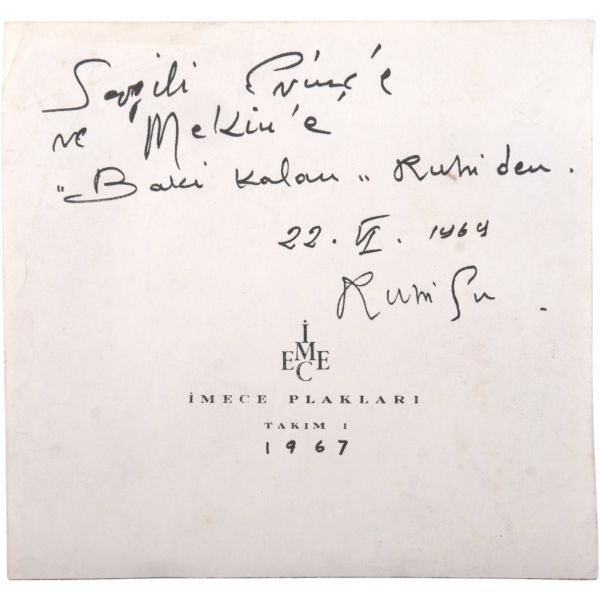 Sevgili Evinç'e
ve Mekin'e
„Baki kalan„ Ruhi'den.
22. VI. 1969
Ruhi Su.
İ
M
E E
C
İMECE PLAKLARI
TAKIM 1
1967